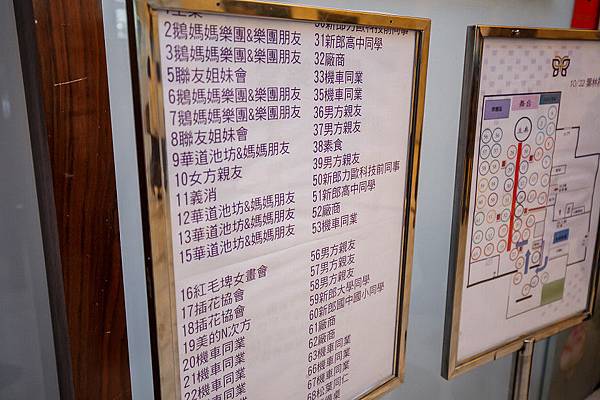 2鵝媽媽樂團&樂團朋友
3鵝媽媽樂團&樂團朋友
5聯友姐妹會
6鵝媽媽樂團&樂團朋友
7鵝媽媽樂團&樂團朋友
8聯友姐妹會
9華道池坊&媽媽朋友
10女方親友
11義消
12華道池坊&媽媽朋友
13華道池坊&媽媽朋友
15華道池坊&媽媽朋友
16紅毛埤女畫會
17插花協會
18插花協會
19美的N次方
20機車同業
21機車同業
22機車同業
30新郎力歐科技前同事
31新郎高中同學
32廠商
33機車同業
35機車同業
36男方親友
37男方親友
38素食
39男方親友
50新郎力歐科技前同事
51新郎高中同學
52廠商
53機車同業
56男方親友
57男方親友
58男方親友
59新郎大學同學
60新郎國中國小同學
61廠商
62廠商
63機車同業
66機車同業
67機車同業
68松葉同仁
10/22
舞台
主桌